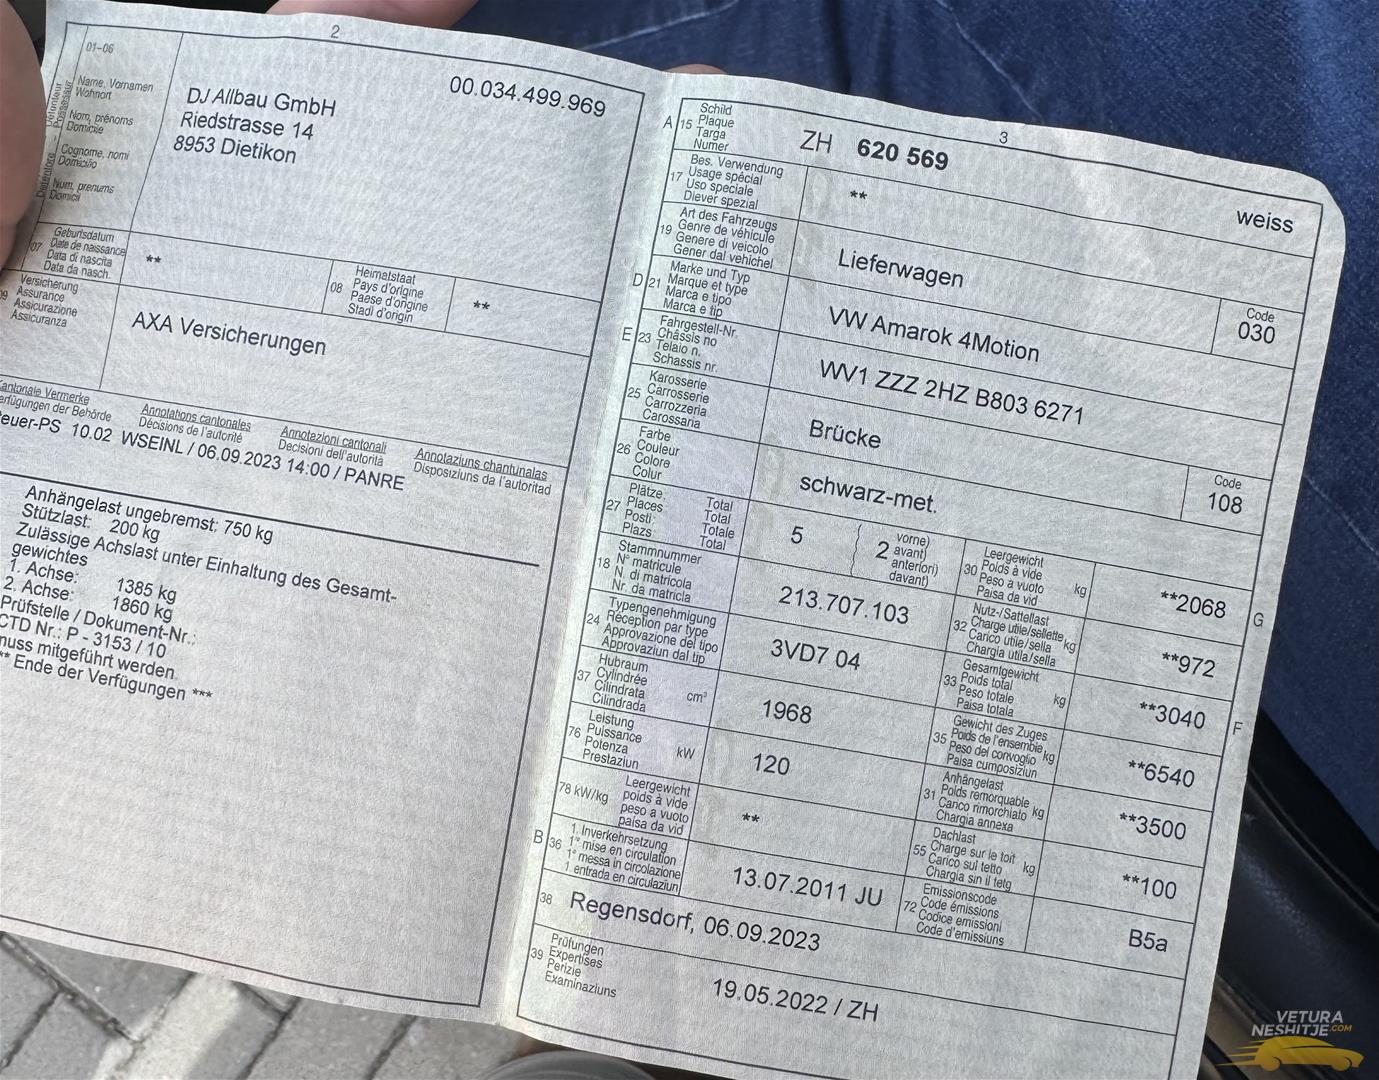 2
01-06
Détenteur
Possessur
Name, Vornamen
Wohnort
Nom, prénoms
Domicile
Cognome, nomi
Domicilio
Num, prenums
Domicil
00.034.499.969
DJ Allbau GmbH
Riedstrasse 14
8953 Dietikon
07
Geburtsdatum
Date de naissance
Data di nascita
Data da nasch.
**
08
Heimatstaat
Pays d'origine
Paese d'origine
Stadi d'origin
**
09
Versicherung
Assurance
Assicurazione
Assicuranza
AXA Versicherungen
Kantonale Vermerke
Verfügungen der Behörde
Annotations cantonales
Décisions de l'autorité
Annotazioni cantonali
Decisioni dell'autorità
Annotaziuns chantunalas
Disposiziuns da l'autoritad
teuer-PS 10.02 WSEINL / 06.09.2023 14:00 / PANRE
Anhängelast ungebremst: 750 kg
Stützlast: 200 kg
Zulässige Achslast unter Einhaltung des Gesamt-
gewichtes
1. Achse: 1385 kg
2. Achse: 1860 kg
Prüfstelle / Dokument-Nr.:
CTD Nr.: P - 3153 / 10
muss mitgeführt werden.
** Ende der Verfügungen ***
3
A 15
Schild
Plaque
Targa
Numer
ZH 620 569
weiss
17
Bes. Verwendung
Usage spécial
Uso speciale
Diever spezial
**
19
Art des Fahrzeugs
Genre de véhicule
Genere di veicolo
Gener dal vehichel
Lieferwagen
Code
030
D 21
Marke und Typ
Marque et type
Marca e tipo
Marca e tip
VW Amarok 4Motion
E 23
Fahrgestell-Nr.
Châssis no
Telaio n.
Schassis nr.
WV1 ZZZ 2HZ B803 6271
25
Karosserie
Carrosserie
Carrozzeria
Carossaria
Brücke
Code
108
26
Farbe
Couleur
Colore
Colur
schwarz-met.
27
Plätze: Total
Places Total
Posti: Totale
Plazs: Total
5
2
vorne)
avant)
anteriori)
davant)
30
Leergewicht
Poids à vide
Peso a vuoto
Paisa da vid
kg
**2068
G
18
Stammnummer
N° matricule
N. di matricola
Nr. da matricla
213.707.103
32
Nutz-/Sattellast
Charge utile/sellette
Carico utile/sella
Chargia utila/sella
kg
**972
24
Typengenehmigung
Réception par type
Approvazione del tipo
Approvaziun dal tip
3VD7 04
33
Gesamtgewicht
Poids total
Peso totale
Paisa totala
kg
**3040
F
37
Hubraum
Cylindrée
Cilindrata
Cilindrada
cm³
1968
35
Gewicht des Zuges
Poids de l'ensemble
Peso del convoglio
Paisa cumposiziun
kg
**6540
76
Leistung
Puissance
Potenza
Prestaziun
kW
120
31
Anhängelast
Poids remorquable
Carico rimorchiato
Chargia annexa
kg
**3500
78 kW/kg
Leergewicht
poids à vide
peso a vuoto
paisa da vid
**
55
Dachlast
Charge sur le toit
Carico sul tetto
Chargia sin il tetg
kg
**100
B 36
1. Inverkehrsetzung
1re mise en circulation
1a messa in circolazione
1. entrada en circulaziun
13.07.2011 JU
72
Emissionscode
Code émissions
Codice emissioni
Code d'emissiuns
B5a
38
Regensdorf, 06.09.2023
39
Prüfungen
Expertises
Perizie
Examinaziuns
19.05.2022 / ZH
VETURA
NESHITJE.COM